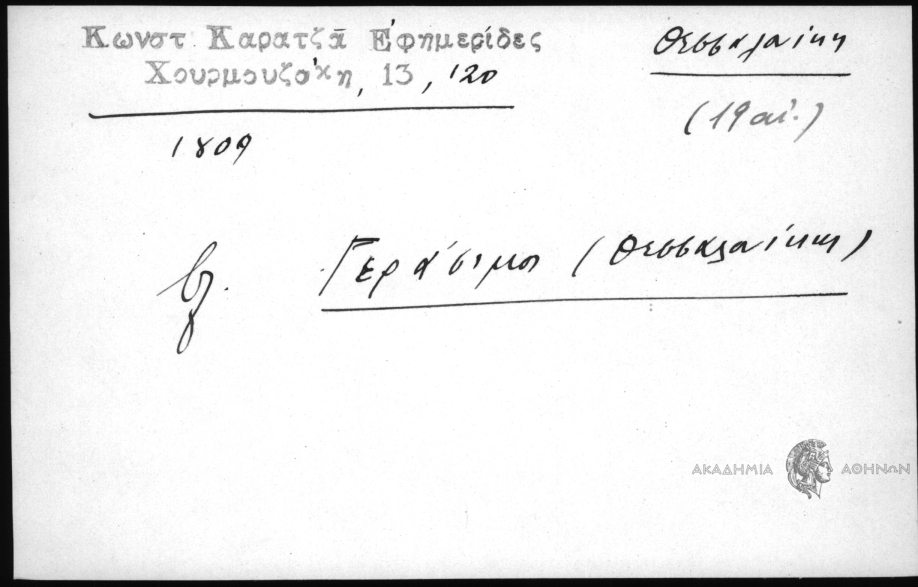 Κωνστ Καρατζᾶ Ἐφημερίδες
Χουρμουζάκη, 13, '20
Θεσσαλονίκη
(19 αἰ.)
1809
βλ.
Γεράσιμος (Θεσσαλονίκη)
ΑΚΑΔΗΜΙΑ ΑΘΗΝΩΝ